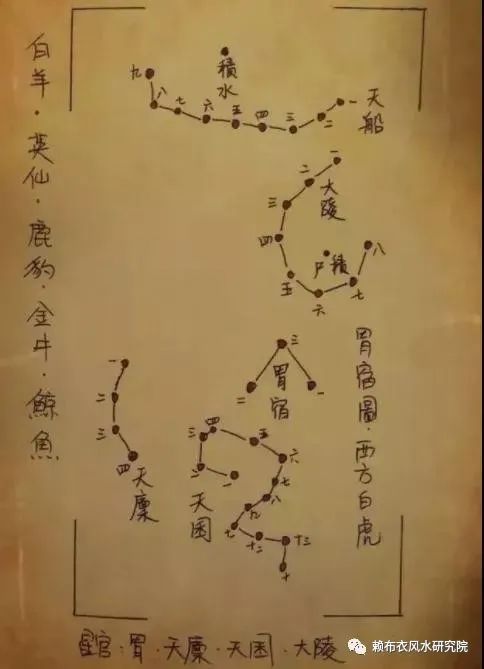 白羊·英仙·鹿豹·金牛·鯨魚
積水
九
八
七
六
五
四
三
二
一
天船
一
二
三
四
五
六
七
八
大陵
積尸
三
二
一
胃宿
胃宿圖·西方白虎
一
二
三
四
天廩
一
二
三
四
五
六
七
八
九
十二
十三
天囷
星官:胃·天廩·天囷·大陵
赖布衣风水研究院